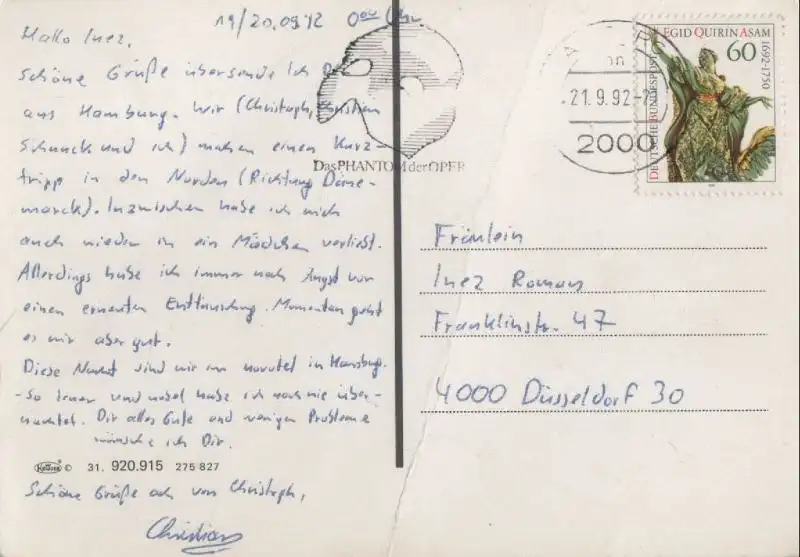 19/20.09.92 0 00 Uhr
Hallo Inez,
schöne Grüße übersende ich Dir
aus Hamburg. Wir (Christoph, Christian
Schunck und ich) machen einen Kurz-
tripp in den Norden (Richtung Däne-
marck). Inzwischen habe ich mich
auch wieder in ein Mädchen verliebt.
Allerdings habe ich immer noch Angst vor
einen erneuten Enttäuschung. Momentan geht
es mir aber gut.
Diese Nacht sind wir im novotel in Hamburg.
-So teuer und nobel habe ich noch nie über-
nachtet. Dir alles Gute und wenigen Probleme
wünsche ich Dir.
Krüger © 31. 920.915 275 827
Schöne Grüße och von Christoph,
Christian
Das PHANTOM der OPER
21.9.92-2
2000
DEUTSCHE BUNDESPOST
EGID QUIRIN ASAM
1692-1750
60
Fräulein
Inez Romay
Franklinstr. 47
4000 Düsseldorf 30